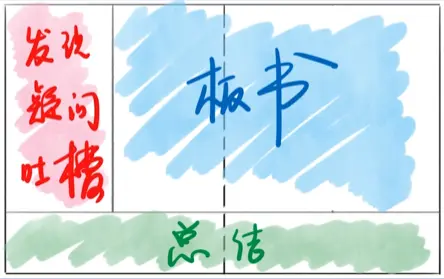 发现
疑问
吐槽
板书
总结